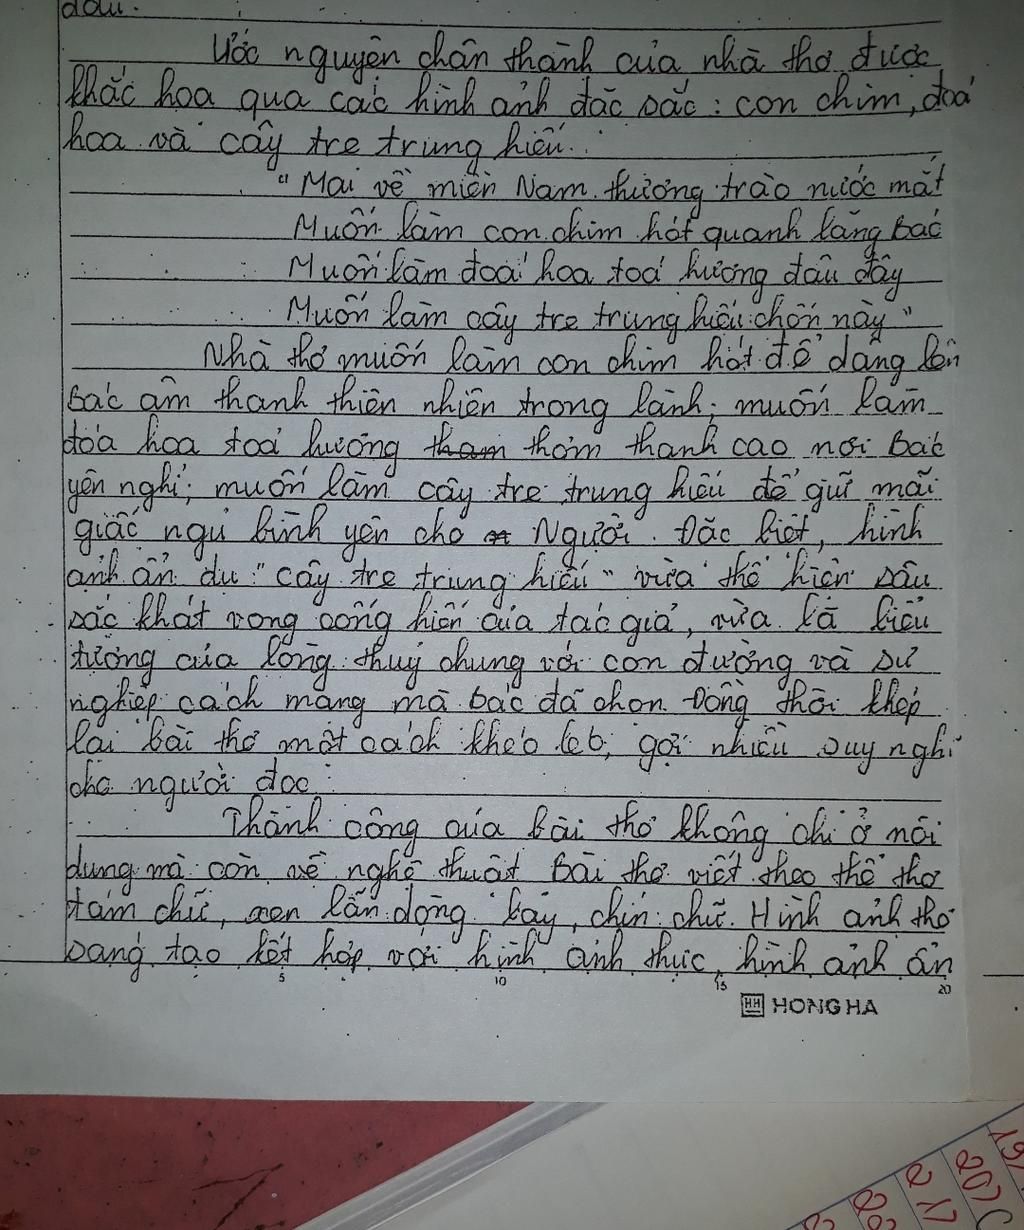 dâu.
Ước nguyện chân thành của nhà thơ được
khắc họa qua các hình ảnh đặc sắc: con chim, đoá
hoa và cây tre trung hiếu.
"Mai về miền Nam thương trào nước mắt
Muốn làm con chim hót quanh lăng bác
Muốn làm đoá hoa toả hương đâu đây
Muốn làm cây tre trung hiếu chốn này"
Nhà thơ muốn làm con chim hót để dâng lên
bác âm thanh thiên nhiên trong lành; muốn làm
đóa hoa toả hương thơm thanh cao nơi bác
yên nghỉ; muốn làm cây tre trung hiếu để giữ mãi
giấc ngủ bình yên cho Người. Đặc biệt, hình
ảnh ẩn dụ "cây tre trung hiếu" vừa thể hiện sâu
sắc khát vọng cống hiến của tác giả, vừa là biểu
tượng của lòng thuỷ chung với con đường và sự
nghiệp cách mạng mà bác đã chọn. Đồng thời khép
lại bài thơ một cách khéo léo, gợi nhiều suy nghĩ
cho người đọc.
Thành công của bài thơ không chỉ ở nội
dung mà còn về nghệ thuật. Bài thơ viết theo thể thơ
tám chữ, xen lẫn dòng bảy, chín chữ. Hình ảnh thơ
sáng tạo kết hợp với hình ảnh thực, hình ảnh ẩn
5 10 15 20
HH HONG HA
19/
20/
21/
22